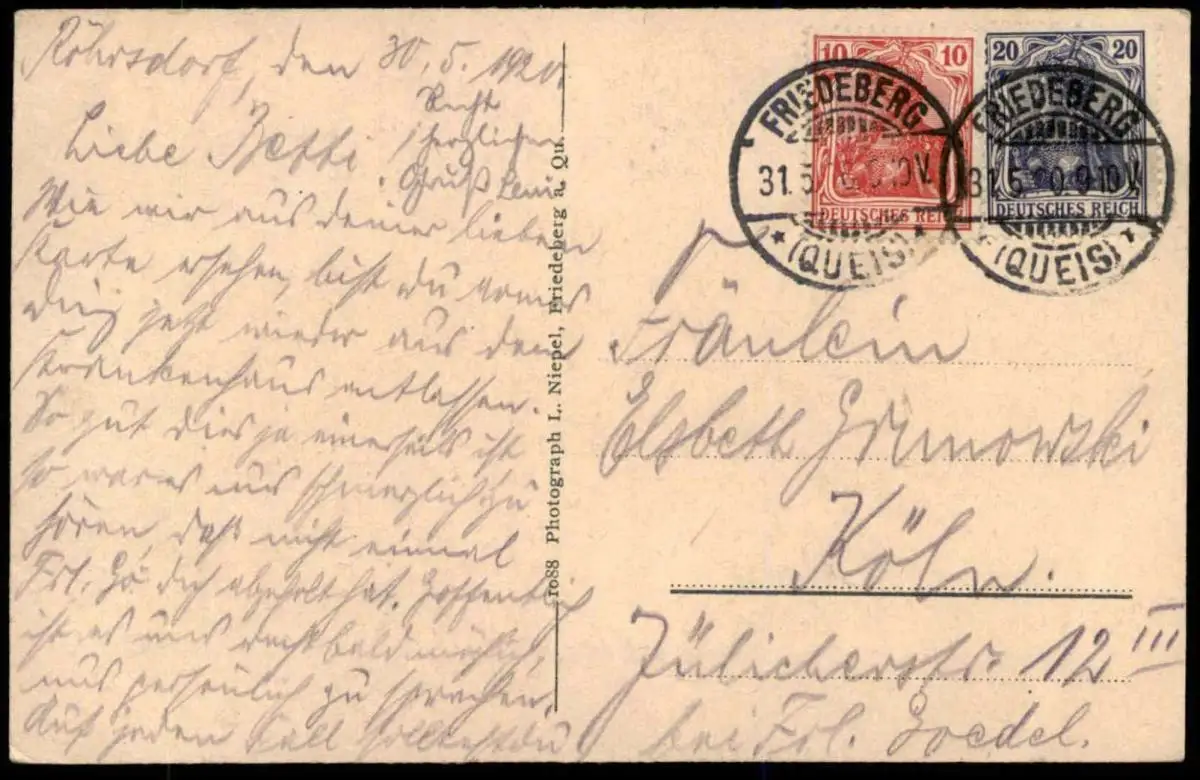 Röhrsdorf, den 30. 5. 1920.
Recht
herzlichen
Gruß Leni
Liebe Betti
Wie wir aus deiner lieben
Karte ersehen, bist du armes
Ding jetzt wieder aus dem
Krankenhaus entlassen.
So gut dies ja einerseits ist
so war es uns schmerzlich zu
hören, daß nicht einmal
Frl. Gö. dich abgeholt hat. Hoffentlich
ist es uns recht bald möglich,
uns persönlich zu sprechen.
Auf jeden Fall solltest du
1088 Photograph L. Niepel, Friedeberg a. Qu.
10 10
DEUTSCHES REICH
20 20
DEUTSCHES REICH
FRIEDEBERG
31.5
10V.
(QUEIS)
FRIEDEBERG
31.5.20.9-10V.
(QUEIS)
Fräulein
Elsbeth Grunowski
Köln.
Jülicherstr. 12 III
bei Frl. Goedel.